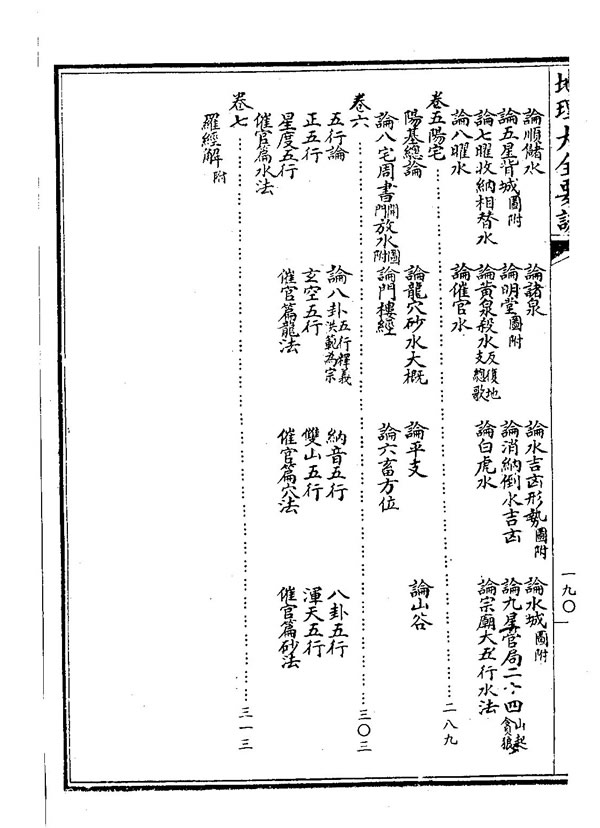 地理大全要訣
一九〇
論順儲水 論諸泉 論水吉凶形勢圖附 論水城圖附
論五星背城圖附 論明堂圖附 論消納倒水吉凶 論九星管局二十四山起貪狼
論七曜收納相替水 論黃泉殺水反復地支總歌 論白虎水 論宗廟大五行水法
論八曜水 論催官水
卷五陽宅……二八九
陽基總論 論龍穴砂水大概 論平支 論山谷
論八宅周書開門放水圖附 論門樓經 論六畜方位
卷六……三〇三
五行論 論八卦五行釋義洪範為宗 納音五行 八卦五行
正五行 玄空五行 雙山五行 渾天五行
星度五行 催官篇龍法 催官篇穴法 催官篇砂法
催官篇水法
卷七……三一三
羅經解附